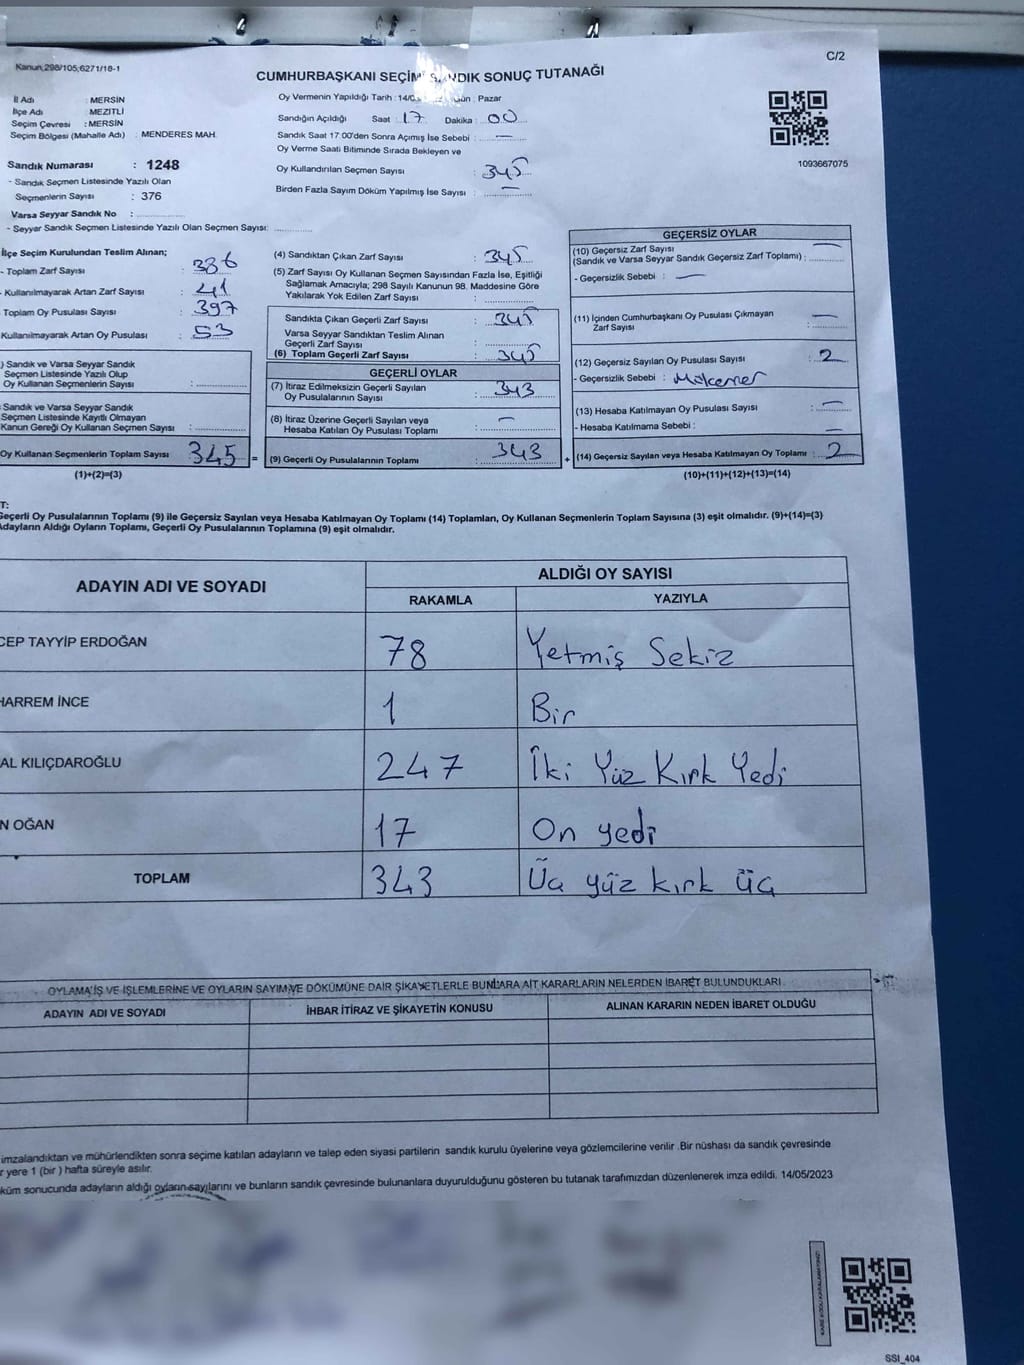 Kanun;298/105;6271/18-1
C/2
CUMHURBAŞKANI SEÇİM SANDIK SONUÇ TUTANAĞI
İl Adı : MERSİN
İlçe Adı : MEZİTLİ
Seçim Çevresi : MERSİN
Seçim Bölgesi (Mahalle Adı) : MENDERES MAH.
Sandık Numarası : 1248
- Sandık Seçmen Listesinde Yazılı Olan
Seçmenlerin Sayısı : 376
Varsa Seyyar Sandık No :
- Seyyar Sandık Seçmen Listesinde Yazılı Olan Seçmen Sayısı:
Oy Vermenin Yapıldığı Tarih : Pazar
Sandığın Açıldığı Saat : 17 Dakika : 00
Sandık Saat 17:00'den Sonra Açımış İse Sebebi : —
Oy Verme Saati Bitiminde Sırada Bekleyen ve
Oy Kullandırılan Seçmen Sayısı : 345
Birden Fazla Sayım Döküm Yapılmış İse Sayısı : —
1093667075
İlçe Seçim Kurulundan Teslim Alınan;
- Toplam Zarf Sayısı : 386
- Kullanılmayarak Artan Zarf Sayısı : 41
Toplam Oy Pusulası Sayısı : 397
Kullanılmayarak Artan Oy Pusulası : 53
) Sandık ve Varsa Seyyar Sandık
Seçmen Listesinde Yazılı Olup
Oy Kullanan Seçmenlerin Sayısı :
Sandık ve Varsa Seyyar Sandık
Seçmen Listesinde Kayıtlı Olmayan
Kanun Gereği Oy Kullanan Seçmen Sayısı :
Oy Kullanan Seçmenlerin Toplam Sayısı 345 =
(1)+(2)=(3)
(4) Sandıktan Çıkan Zarf Sayısı : 345
(5) Zarf Sayısı Oy Kullanan Seçmen Sayısından Fazla İse, Eşitliği
Sağlamak Amacıyla; 298 Sayılı Kanunun 98. Maddesine Göre
Yakılarak Yok Edilen Zarf Sayısı :
Sandıkta Çıkan Geçerli Zarf Sayısı : 345
Varsa Seyyar Sandıktan Teslim Alınan
Geçerli Zarf Sayısı :
(6) Toplam Geçerli Zarf Sayısı : 345
GEÇERLİ OYLAR
(7) İtiraz Edilmeksizin Geçerli Sayılan
Oy Pusulalarının Sayısı : 343
(8) İtiraz Üzerine Geçerli Sayılan veya
Hesaba Katılan Oy Pusulası Toplamı : —
(9) Geçerli Oy Pusulalarının Toplamı : 343 +
GEÇERSİZ OYLAR
(10) Geçersiz Zarf Sayısı —
(Sandık ve Varsa Seyyar Sandık Geçersiz Zarf Toplamı) :
- Geçersizlik Sebebi : —
(11) İçinden Cumhurbaşkanı Oy Pusulası Çıkmayan
Zarf Sayısı : —
(12) Geçersiz Sayılan Oy Pusulası Sayısı : 2
- Geçersizlik Sebebi :
(13) Hesaba Katılmayan Oy Pusulası Sayısı : —
- Hesaba Katılmama Sebebi : —
(14) Geçersiz Sayılan veya Hesaba Katılmayan Oy Toplamı : 2
(10)+(11)+(12)+(13)=(14)
T:
Geçerli Oy Pusulalarının Toplamı (9) ile Geçersiz Sayılan veya Hesaba Katılmayan Oy Toplamı (14) Toplamları, Oy Kullanan Seçmenlerin Toplam Sayısına (3) eşit olmalıdır. (9)+(14)=(3)
Adayların Aldığı Oyların Toplamı, Geçerli Oy Pusulalarının Toplamına (9) eşit olmalıdır.
ADAYIN ADI VE SOYADI ALDIĞI OY SAYISI
RAKAMLA YAZIYLA
CEP TAYYİP ERDOĞAN 78 Yetmiş Sekiz
HARREM İNCE 1 Bir
AL KILIÇDAROĞLU 247 İki Yüz Kırk Yedi
N OĞAN 17 On yedi
TOPLAM 343 Üç yüz kırk üç
OYLAMA İŞ VE İŞLEMLERİNE VE OYLARIN SAYIM VE DÖKÜMÜNE DAİR ŞİKAYETLERLE BUNLARA AİT KARARLARIN NELERDEN İBARET BULUNDUKLARI
ADAYIN ADI VE SOYADI İHBAR İTİRAZ VE ŞİKAYETİN KONUSU ALINAN KARARIN NEDEN İBARET OLDUĞU
imzalandıktan ve mühürlendikten sonra seçime katılan adayların ve talep eden siyasi partilerin sandık kurulu üyelerine veya gözlemcilerine verilir .Bir nüshası da sandık çevresinde
r yere 1 (bir ) hafta süreyle asılır.
küm sonucunda adayların aldığı oyların sayılarını ve bunların sandık çevresinde bulunanlara duyurulduğunu gösteren bu tutanak tarafımızdan düzenlenerek imza edildi. 14/05/2023
SSİ_404